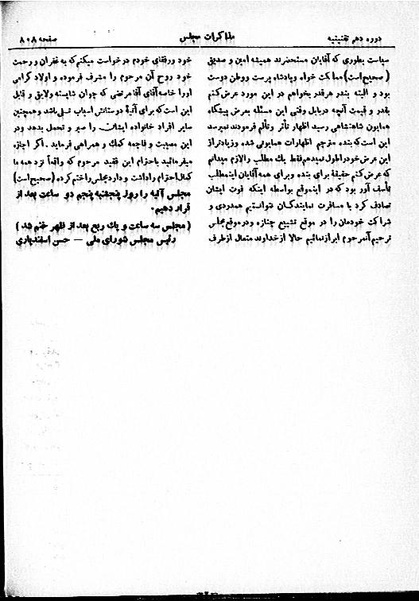 دوره دهم تقنینیه
مذاکرات مجلس
صفحه ۸۰۸
سیاست بطوری که آقایان مستحضرند همیشه امین و صدیق
(صحیح است) مملکت خواه و پادشاه پرست و وطن دوست
بود و البته بنده هرقدر بخواهم در این مورد عرض کنم
بقدر و قیمت آنچه در بابل وقتی این مسئله بعرض پیشگاه
همایون شاهنشاهی رسید اظهار تأثر و تألم فرمودند نمیرسد
این است که بنده مترجم اظهارات همایونی شده و زیادتر از
این عرض خود را طول نمیدهم فقط یک مطلب را لازم میدانم
که عرض کنم حقیقة برای بنده و برای همه آقایان این مطلب
تأسف آور بود که در این موقع بواسطه اینکه فوت ایشان
تصادف کرد با مسافرت نمایندگان نتوانستیم همدردی و
شراکت خودمان را در موقع تشییع جنازه و در موقع مجلس
ترحیم آنمرحوم ابراز نمائیم حالا از خداوند متعال از طرف
خود و رفقای خودم درخواست میکنم که به غفران و رحمت
خود روح آن مرحوم را مشرف فرموده و اولاد گرامی
او را خاصه آقای آقا مرتضی که جوان شایسته ولایق و قابل
این است که برای آتیهٔ دوستانش اسباب تسلی باشد و همچنین
سایر افراد خانواده ایشان را صبر و تحمل بدهد و در
این مصیبت و فاجعه کمک و همراهی فرماید . اگر اجازه
میفرمائید با حترام این فقید مرحوم که واقعاً نزد همه ما
کمال احترام را داشت و دارد مجلس را ختم کرده (صحیح است)
مجلس آتیه را روز پنجشنبه پنجم دو ساعت بعد از
قرار دهیم.
( مجلس سه ساعت و یک ربع بعد از ظهر ختم شد )
رئیس مجلس شورای ملی — حسن اسفندیاری